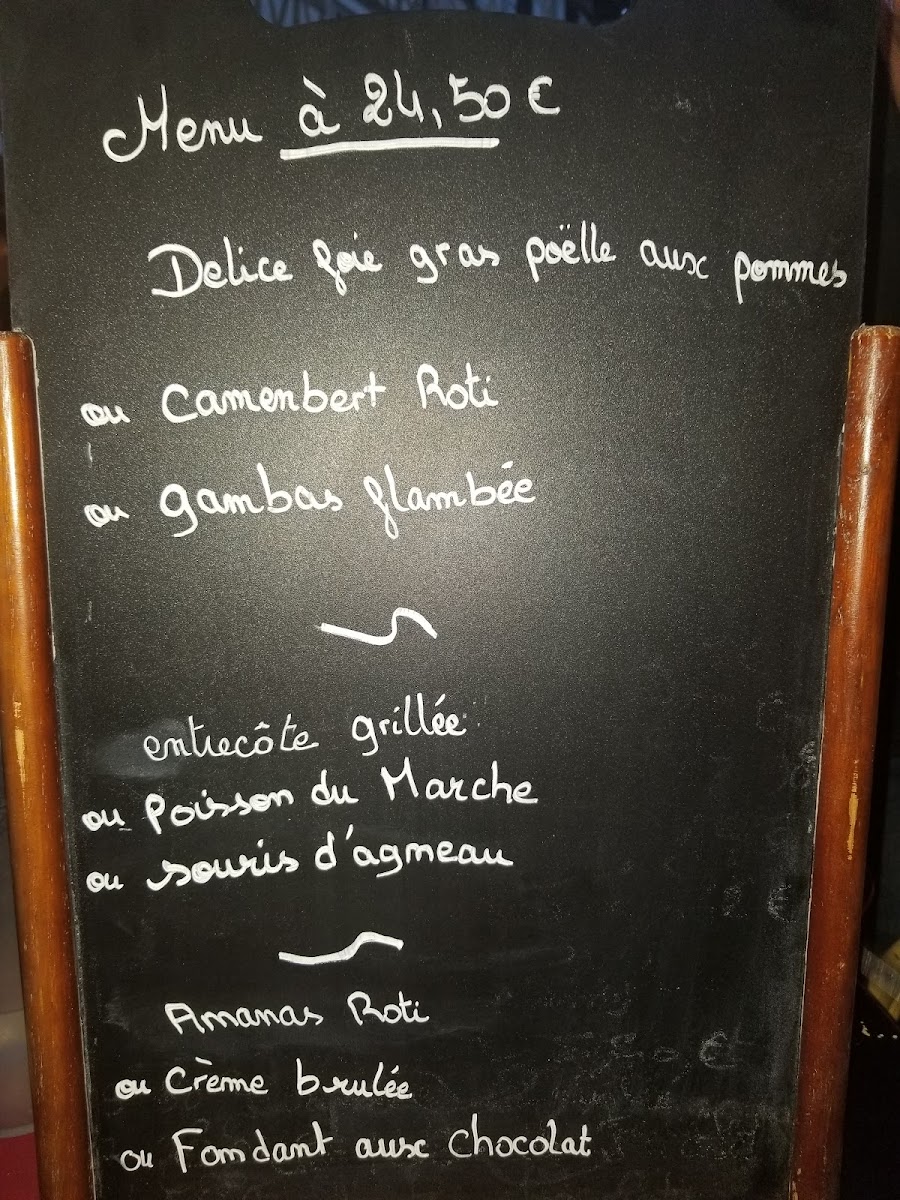 Menu à 24,50 €
Delice foie gras poëlle aux pommes
ou Camenbert Roti
ou gambas flambée
entrecôte grillée
ou Poisson du Marche
ou souris d'agneau
Ananas Roti
ou Crème brulée
ou Fondant aux chocolat